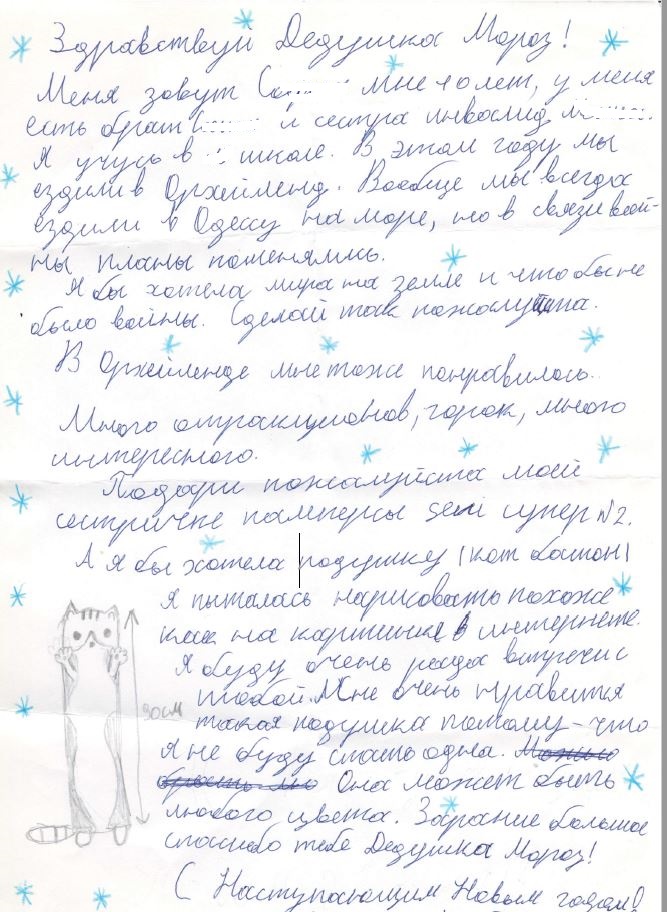 Здравствуй Дедушка Мороз!
Меня зовут С мне 10 лет, у меня
есть брат и сестра инвалид
Я учусь в школе. В этом году мы
ездили в Орхейленд. Вообще мы всегда
ездили в Одессу на море, но в связи вой-
ны планы поменялись.
Я бы хотела мира на земле и что бы не
было войны. Сделай так пожалуйшта.
В Орхейленде мне тоже понравилось.
Много аттракционов, горок, много
интересного.
Подари пожалуйста моей
сестричке памперсы seni супер N2.
А я бы хотела подушку (кот батон)
я пыталась нарисовать похоже
как на картинке в интернете.
Я буду очень рада встречи с
тобой. Мне очень нравится
такая подушка потому-что
я не буду спать одна.
Она может быть
любого цвета. Зарание большое
спасибо тебе Дедушка Мороз!
С Наступающим Новым годом!